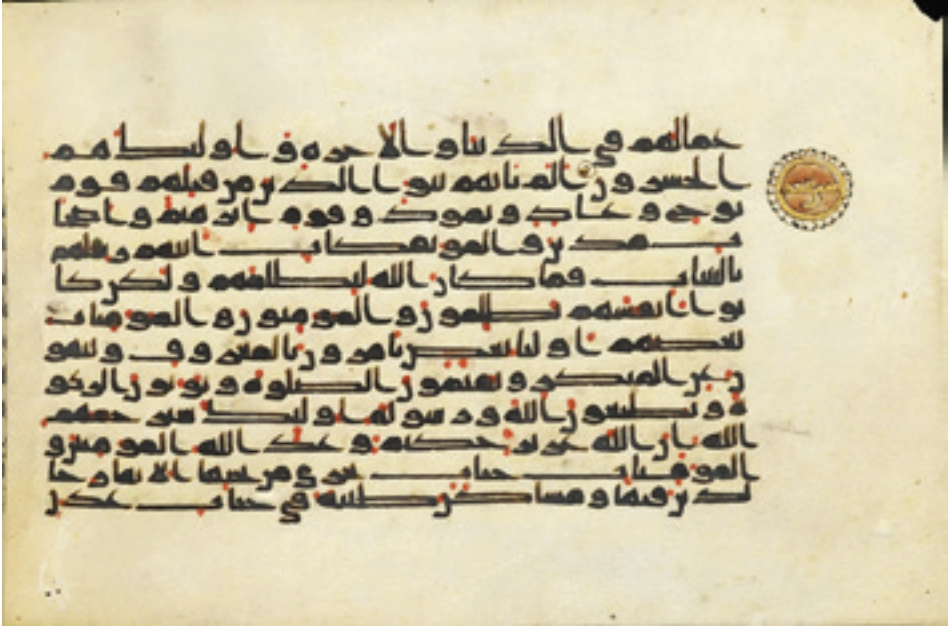 عمالهم في الدنيا والاخرة واولئك هم
الخسرون الم ياتهم نبوا الذين من قبلهم قوم
نوح وعاد وثمود وقوم ابرهيم واصحا
ب مدين والموتفكات اتتهم رسلهم
بالبينات فما كان الله ليظلمهم ولكن كا
نوا انفسهم يظلمون والمومنون والمومنات
بعضهم اوليا بعض يامرون بالمعروف وينهو
ن عن المنكر ويقيمون الصلوة ويوتون الزكو
ة ويطيعون الله ورسوله اولئك سيرحمهم
الله ان الله عزيز حكيم وعد الله المومنين و
المومنات جنات تجري من تحتها الانهار خا
لدين فيها ومساكن طيبة في جنات عدن